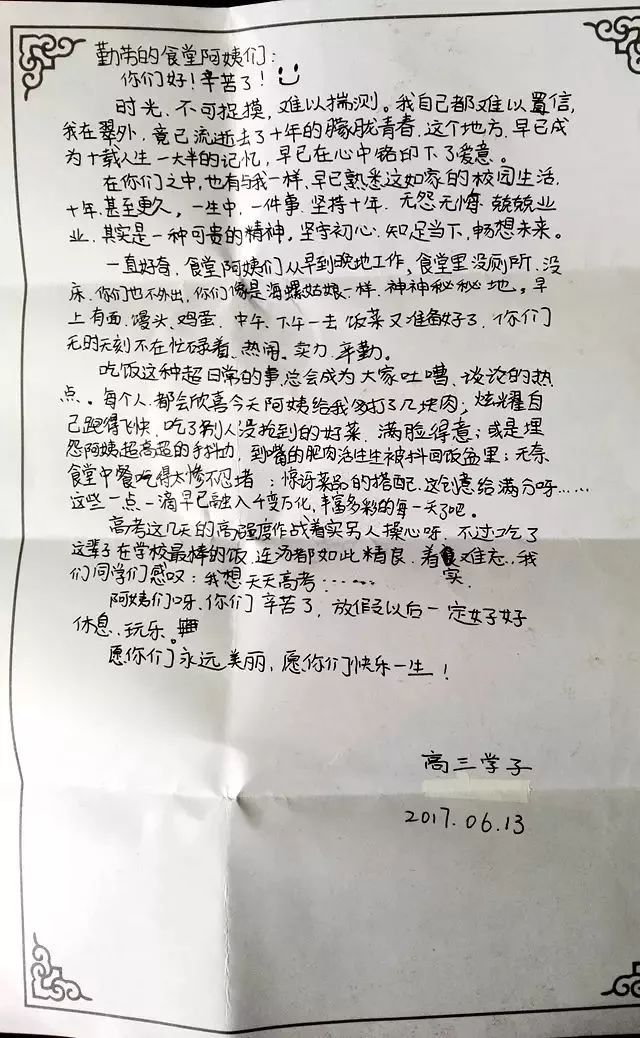 勤劳的食堂阿姨们：
你们好！辛苦了！
时光、不可捉摸，难以揣测。我自己都难以置信，
我在翠外，竟已流逝去了十年的朦胧青春，这个地方，早已成
为十载人生一大半的记忆，早已在心中铭印下了爱意。
在你们之中，也有与我一样，早已熟悉这如家的校园生活，
十年，甚至更久，一生中，一件事，坚持十年，无怨无悔，兢兢业
业，其实是一种可贵的精神，坚守初心，知足当下，畅想未来。
一直好奇，食堂阿姨们从早到晚地工作，食堂里没厕所、没
床、你们也不外出，你们像是海螺姑娘一样，神神秘秘地。早
上有面、馒头、鸡蛋，中午、下午一去饭菜又准备好了，你们
无时无刻不在忙碌着、热闹、卖力、辛勤。
吃饭这种超日常的事总会成为大家吐嘈、谈论的热
点。每个人都会欣喜今天阿姨给我多打了几块肉；炫耀自
己跑得飞快，吃了别人没抢到的好菜，满脸得意；或是埋
怨阿姨超高超的手抖功，到嘴的肥肉活生生被抖回饭盆里；无奈
食堂中餐吃得太惨不忍睹；惊讶菜品的搭配，这创意给满分呀……
这些一点一滴早已融入千变万化，丰富多彩的每一天了吧。
高考这几天的高强度作战着实另人操心呀，不过吃了
这辈子在学校最棒的饭，连汤都如此精良，着实难忘，我
们同学们感叹：我想天天高考……
阿姨们呀，你们辛苦了，放假以后一定好好
休息、玩乐。
愿你们永远美丽，愿你们快乐一生！
高三学子
2017.06.13